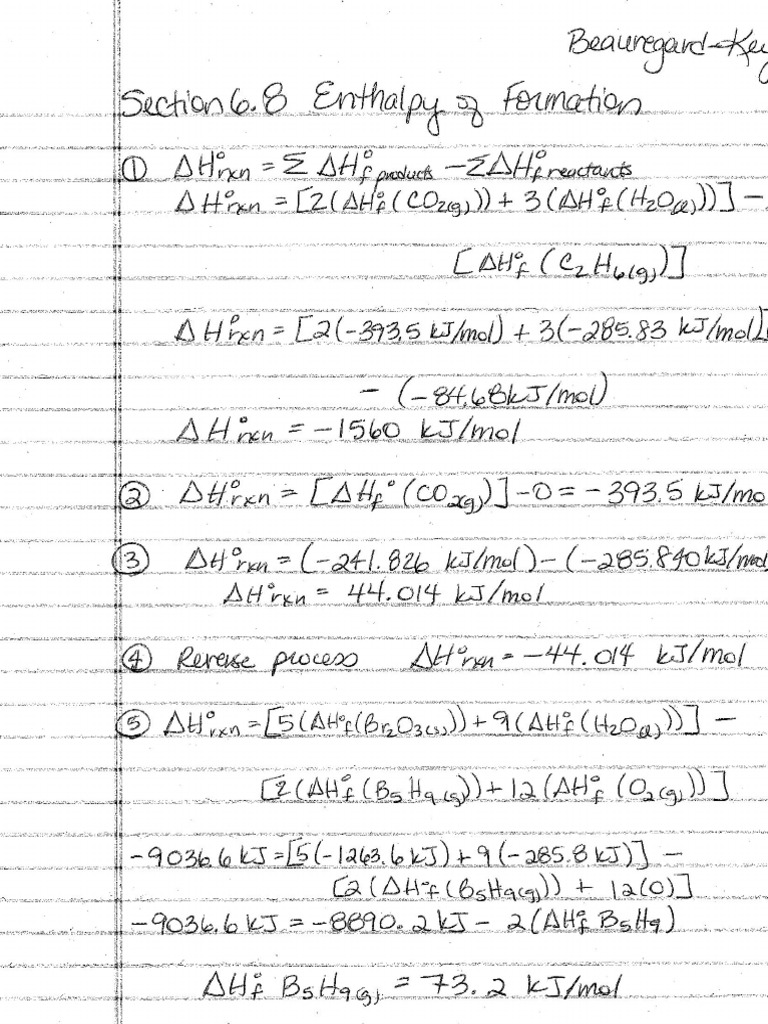 Beauregard-Key
Section 6.8 Enthalpy of Formation
① ΔH°rxn = Σ ΔH°f products − ΣΔH°f reactants
ΔH°rxn = [2(ΔH°f(CO2(g))) + 3(ΔH°f(H2O(l)))] −
[ΔH°f (C2H6(g))]
ΔH°rxn = [2(-393.5 kJ/mol) + 3(-285.83 kJ/mol)]
− (-84.68kJ/mol)
ΔH°rxn = -1560 kJ/mol
② ΔH°rxn = [ΔHf°(CO2(g))] -0 = -393.5 kJ/mo
③ ΔH°rxn = (-241.826 kJ/mol) − (-285.840kJ/mol
ΔH°rxn = 44.014 kJ/mol
④ Reverse process ΔH°rxn = -44.014 kJ/mol
⑤ ΔH°rxn = [5(ΔH°f(Br2O3(s))) + 9(ΔH°f(H2O(l)))] −
[2(ΔH°f(B5H9(g))) + 12(ΔH°f(O2(g)))]
-9036.6 kJ = [5(-1263.6 kJ) + 9(-285.8 kJ)] −
[2(ΔH°f(B5H9(g))) + 12(0)]
-9036.6 kJ = -8890.2 kJ − 2(ΔH°f B5H9)
ΔH°f B5H9(g) = 73.2 kJ/mol